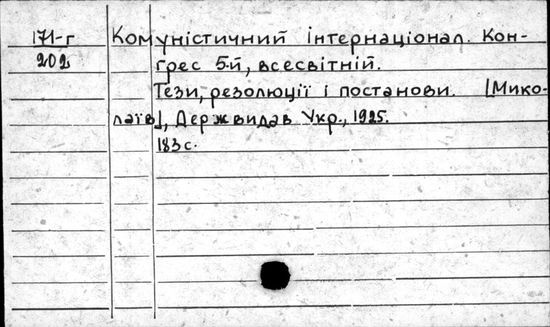 171-г Комуністичний інтернаціонал. Кон-
202 грес 5-й, всесвітній.
Тези, резолюції і постанови. [Мико-
лаїв], Держвидав Укр., 1925.
183 с.